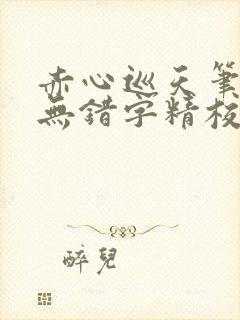 赤心巡天筆
無錯字精校
醉兒